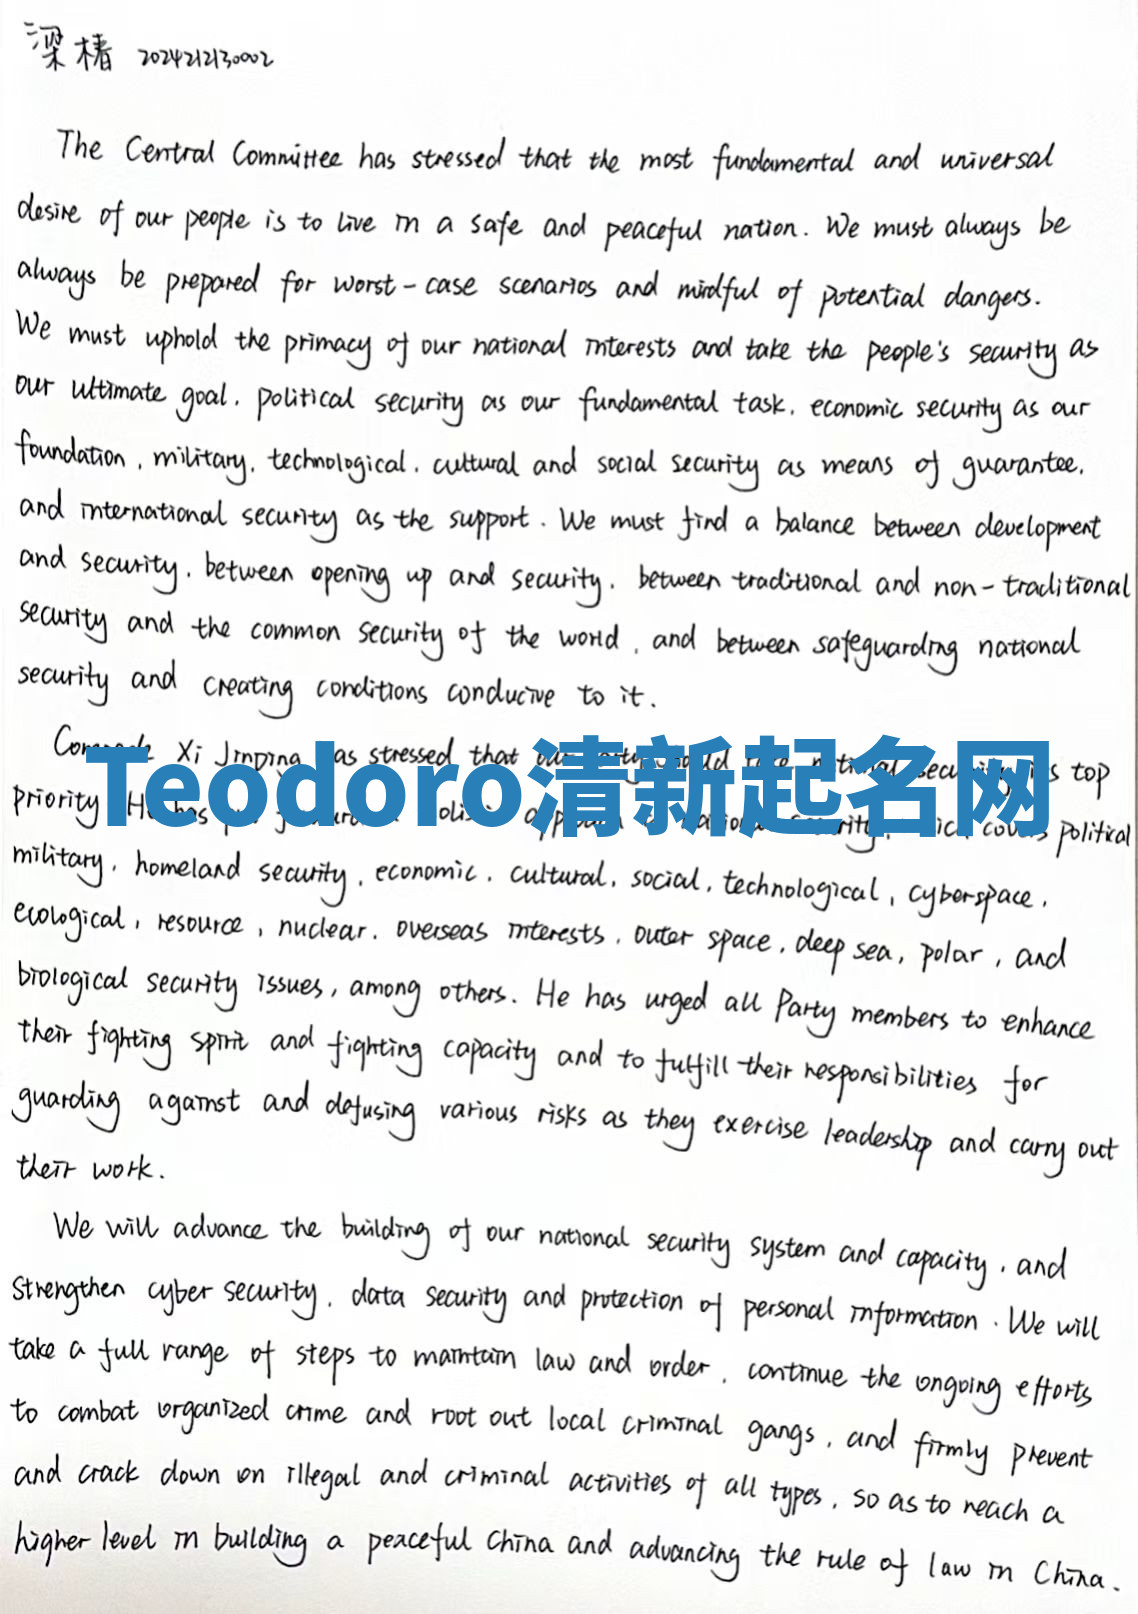 梁椿 2024212130002
The Central Committee has stressed that the most fundamental and universal
desire of our people is to live in a safe and peaceful nation. We must always be
always be prepared for worst-case scenarios and mindful of potential dangers.
We must uphold the primacy of our national interests and take the people's security as
our ultimate goal, political security as our fundamental task, economic security as our
foundation, military, technological, cultural and social security as means of guarantee,
and international security as the support. We must find a balance between development
and security, between opening up and security, between traditional and non-traditional
security and the common security of the world, and between safeguarding national
security and creating conditions conducive to it.
Xi Jinping has stressed that national security as top
Teodoro清新起名网
priority. He has security, which covers political
military, homeland security, economic, cultural, social, technological, cyberspace,
ecological, resource, nuclear, overseas interests, outer space, deep sea, polar, and
biological security issues, among others. He has urged all Party members to enhance
their fighting spirit and fighting capacity and to fulfill their responsibilities for
guarding against and defusing various risks as they exercise leadership and carry out
their work.
We will advance the building of our national security system and capacity, and
strengthen cyber security, data security and protection of personal information. We will
take a full range of steps to maintain law and order, continue the ongoing efforts
to combat organized crime and root out local criminal gangs, and firmly prevent
and crack down on illegal and criminal activities of all types, so as to reach a
higher level in building a peaceful China and advancing the rule of law in China.